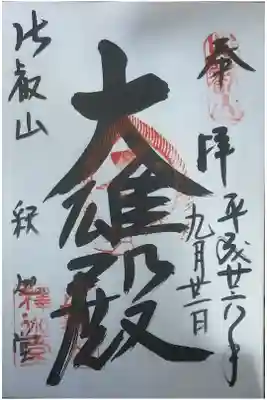 奉拝
平成廿六年
九月廿一日
大雄殿
比叡山 釈迦堂